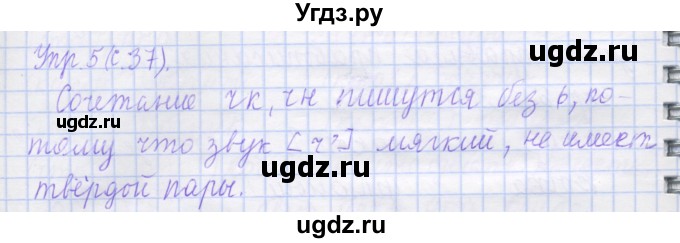 Угдз.ру
Упр. 5 (с. 37).
ugdz.ru
Сочетание чк, чн пишутся без ь, по-
ugdz.ru
тому что звук [ч'] мягкий, не имеет
твёрдой пары.
ugdz.ru ugdz.ru